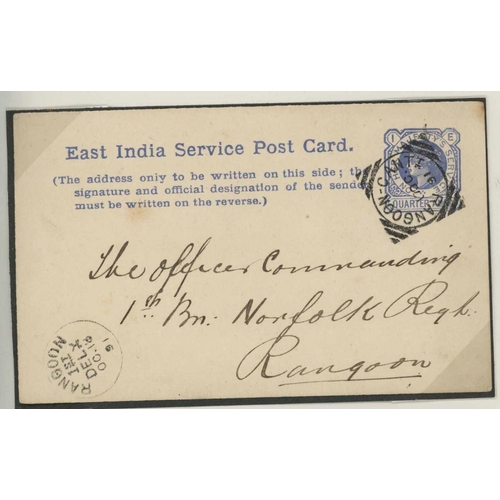 East India Service Post Card.
(The address only to be written on this side; the
signature and official designation of the sende
must be written on the reverse.)
The Officer Commanding
1st Bn: Norfolk Regt.
Rangoon
I E
QUARTER
RANGOON CANT
RANGOON
1ST
DEL
OC:16
91